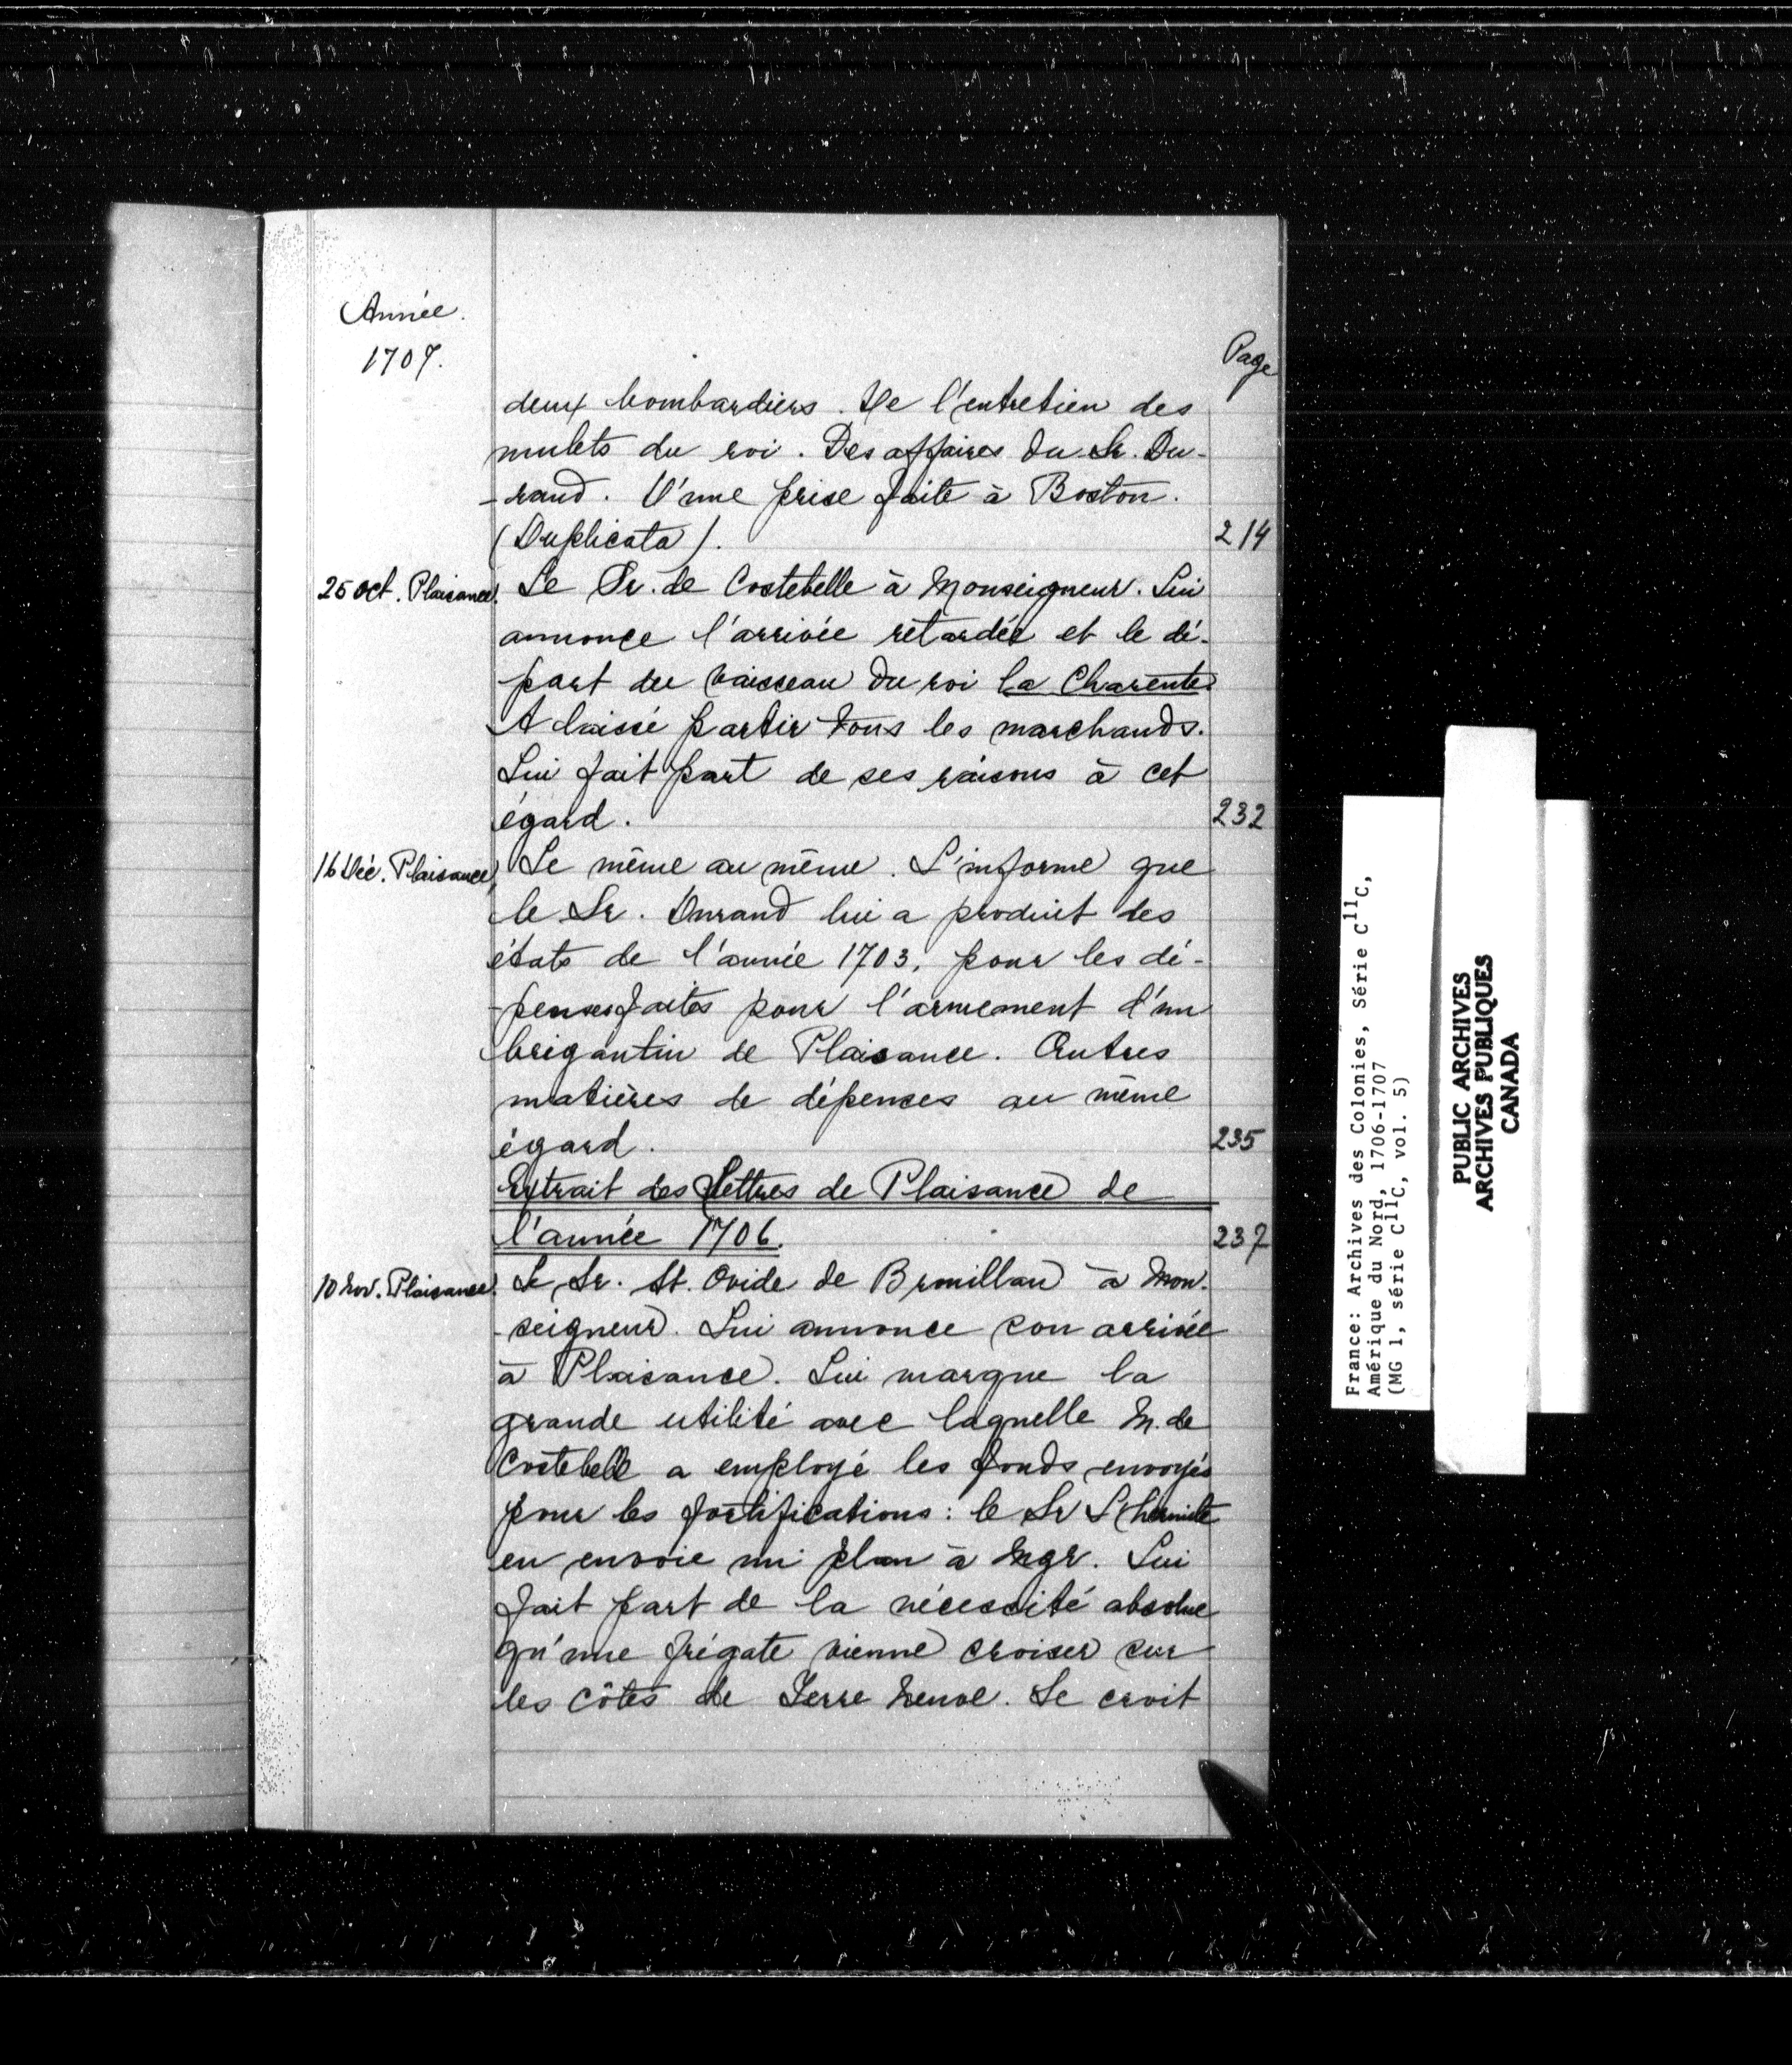 Année.
1707.
Page
deux bombardiers. De l'entretien des
mulets du roi. Des affaires du Sr. Du-
-rand. D'une prise faite à Boston.
(Duplicata). 214
25 oct. Plaisance. Le Sr. de Costebelle à Monseigneur. Lui
annonce l'arrivée retardée et le dé-
part du vaisseau du roi la Charente.
A laissé partir tous les marchands.
Lui fait part de ses raisons à cet
égard. 232
16 Déc. Plaisance, Le même au même. L'informe que
le Sr. Durand lui a produit des
états de l'année 1703, pour les dé-
-penses faites pour l'armement d'un
brigantin de Plaisance. Autres
matières de dépenses au même
égard. 235
Extrait des Lettres de Plaisance de
l'année 1706. 237
10 Nov. Plaisance. Le Sr. St. Ovide de Brouillan à Mon-
-seigneur. Lui annonce son arrivée
à Plaisance. Lui marque la
grande utilité avec laquelle M. de
Costebelle a employé les fonds envoyés
pour les fortifications: le Sr L'hermite
en envoie un plan à Mgr. Lui
fait part de la nécessité absolue
qu'une frégate vienne croiser sur
les côtes de Terre Neuve. Se croit
France: Archives des Colonies, Série C11C,
Amérique du Nord, 1706-1707
(MG 1, série C11C, vol. 5)
PUBLIC ARCHIVES
ARCHIVES PUBLIQUES
CANADA